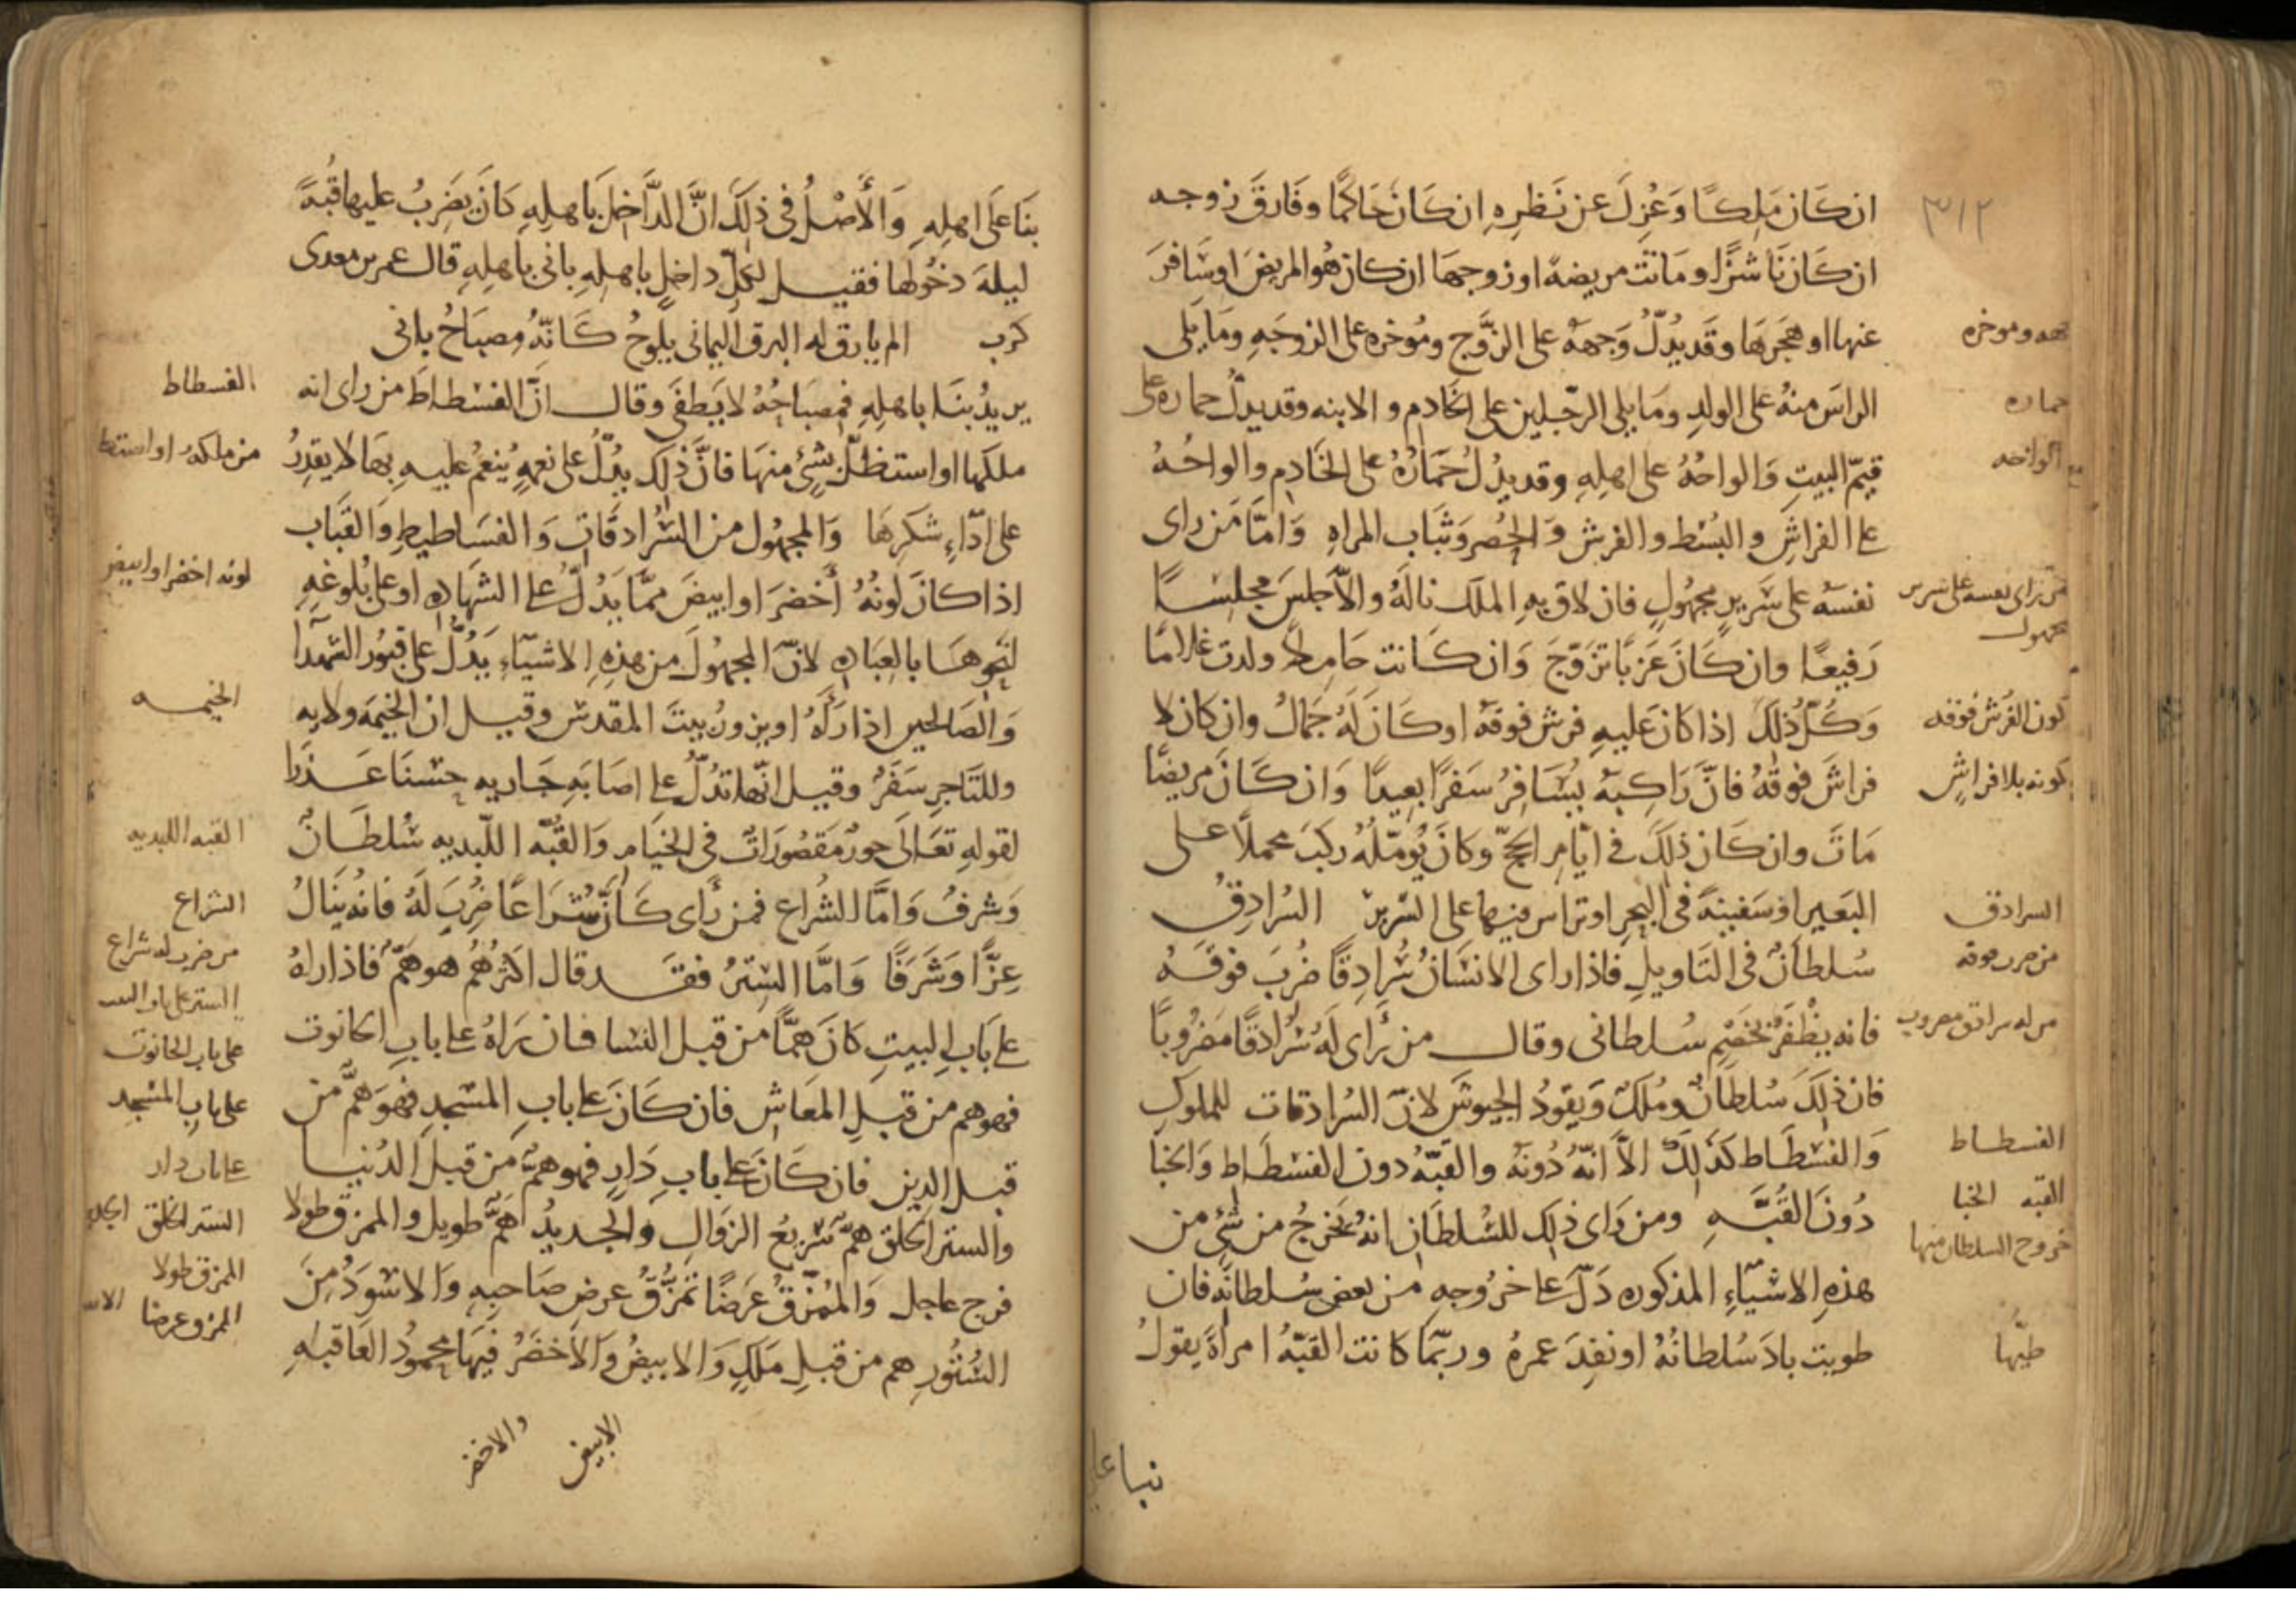 ٣١٢
ان كان ملكًا وعُزل عن نظره ان كان حاكمًا وفارق زوجه
ان كان ناشزًا وماتت مريضة او زوجها ان كان هو المريض او سافر
عنها او هجرها وقد يدلّ وجهه على الزوج ومُوخره على الزوجه وما يلى
الراس منه على الولد وما يلى الرجلين على الخادم والابنه وقد يدلّ حماره على
قيّم البيت والواحُهُ على اهله وقد يدل حماره على الخادم والواحُهُ
على الفراش والبُسط والفرش والحُصر وثياب المراه وامّا من راى
نفسه على سرير مجهول فان لاق به الملك ناله والّا جلس مجلسًا
رفيعًا وان كان عزبًا تزوّج وان كانت حاملا ولدت غلامًا
وكلّ ذلك اذا كان عليه فرش فوقه او كان له جمال وان كان لا
فراش فوقه فانّ راكبه يسافر سفرًا بعيدًا وان كان مريضًا
مات وان كان ذلك فى ايّام الحجّ وكان يُومّله ركب محملًا على
البعير او سفينةً فى البحر او تراس فيها على السرير السُرادق
سُلطانٌ فى التاويل فاذا راى الانسان سُرادقًا ضُرب فوقه
فانه يظفر بخصم سلطانى وقال من راى له سُرادقًا مضروبًا
فان ذلك سُلطانٌ ومُلكٌ ويقودُ الجيوش لانّ السُرادقات للملوك
والفسطاط كذلك الّا انّه دُونه والقبّه دون الفسطاط والخبا
دُون القُبّه ومن راى ذلك للسُلطان انه يخرجُ من شئ من
هذه الاشيآء المذكوره دلّ على خروجه من بعض سُلطانه فان
طويت باد سُلطانُه او نفد عمرهُ وربّما كانت القبّهُ امراةً يقولُ
وموخره
حماره
الواحه
من راى نفسه على سرير
مجهول
كون الفرش فوقه
كونه بلا فراش
السرادق
من ضرب فوقه
من له سرادق مضروب
الفسطاط
القبه الخبا
خروج السلطان منها
طيّها
بنا على
بنا على اهله والأصل فى ذلك انّ الداخل باهله كان يضربُ عليها قبّةً
ليلة دخولها فقيل لكلّ داخل باهله بانى باهله قال عمر بن معدى
كرب الم يارق له البرق اليمانى يلوحُ كانّه مصباحُ بانى
يريدُ بنا باهله فمصباحُهُ لا يطفى وقال انّ الفسطاط من راى انه
ملكها او استظلّ بشئ منها فانّ ذلك يدلّ على نعمةٍ يُنعمُ عليه بها لا يقدرُ
على ادّاء شكرها والمجهُول من السُرادقات والفساطيط والقباب
اذا كان لونُهُ أخضر او ابيض ممّا يدُلّ على الشهاده او على بُلوغه
لنحوها بالعباده لانّ المجهُول من هذه الاشيّآء يدُلّ على قبُور الشهدا
والصالحين اذا رآهُ او يزورُ بيت المقدس وقيل ان الخيمه ولايه
وللتاجر سفرٌ وقيل انّها تدُلّ على اصابة جاريه حسنا عذرا
لقوله تعالى حورٌ مقصُوراتٌ فى الخيام والقُبّه اللّبديه سُلطانٌ
وشرفٌ وامّا الشراع فمن راى كانّ شراعًا ضُرب له فانه ينالُ
عزًّا وشرفًا وامّا الستر فقد قال اكثرهُم هو همٌّ فاذا راهُ
على باب البيت كان همًّا من قبل النسا فان راهُ على باب الحانوت
فهو هم من قبل المعاش فان كان على باب المسجد فهو همٌّ من
قبل الدين فان كان على باب دار فهو همٌّ من قبل الدُنيا
والستر الخلق همٌّ سريعُ الزوال والجديدُ همٌّ طويل والممزق طولا
فرج عاجل والمُمزّقُ عرضًا تمزّقُ عرض صاحبه والاسودُ من
الستُور هم من قبل ملكٍ والابيضُ والأخضرُ فيها محمودُ العاقبه
الفسطاط
من ملكه او استظل
لونه اخضر او ابيض
الخيمه
القبه اللبديه
الشراع
من ضرب له شراع
الستر على باب البيت
على باب الحانوت
على باب المسجد
على باب دار
الستر الخلق
الممزق طولا
الممزق عرضا
الابيض والاخضر